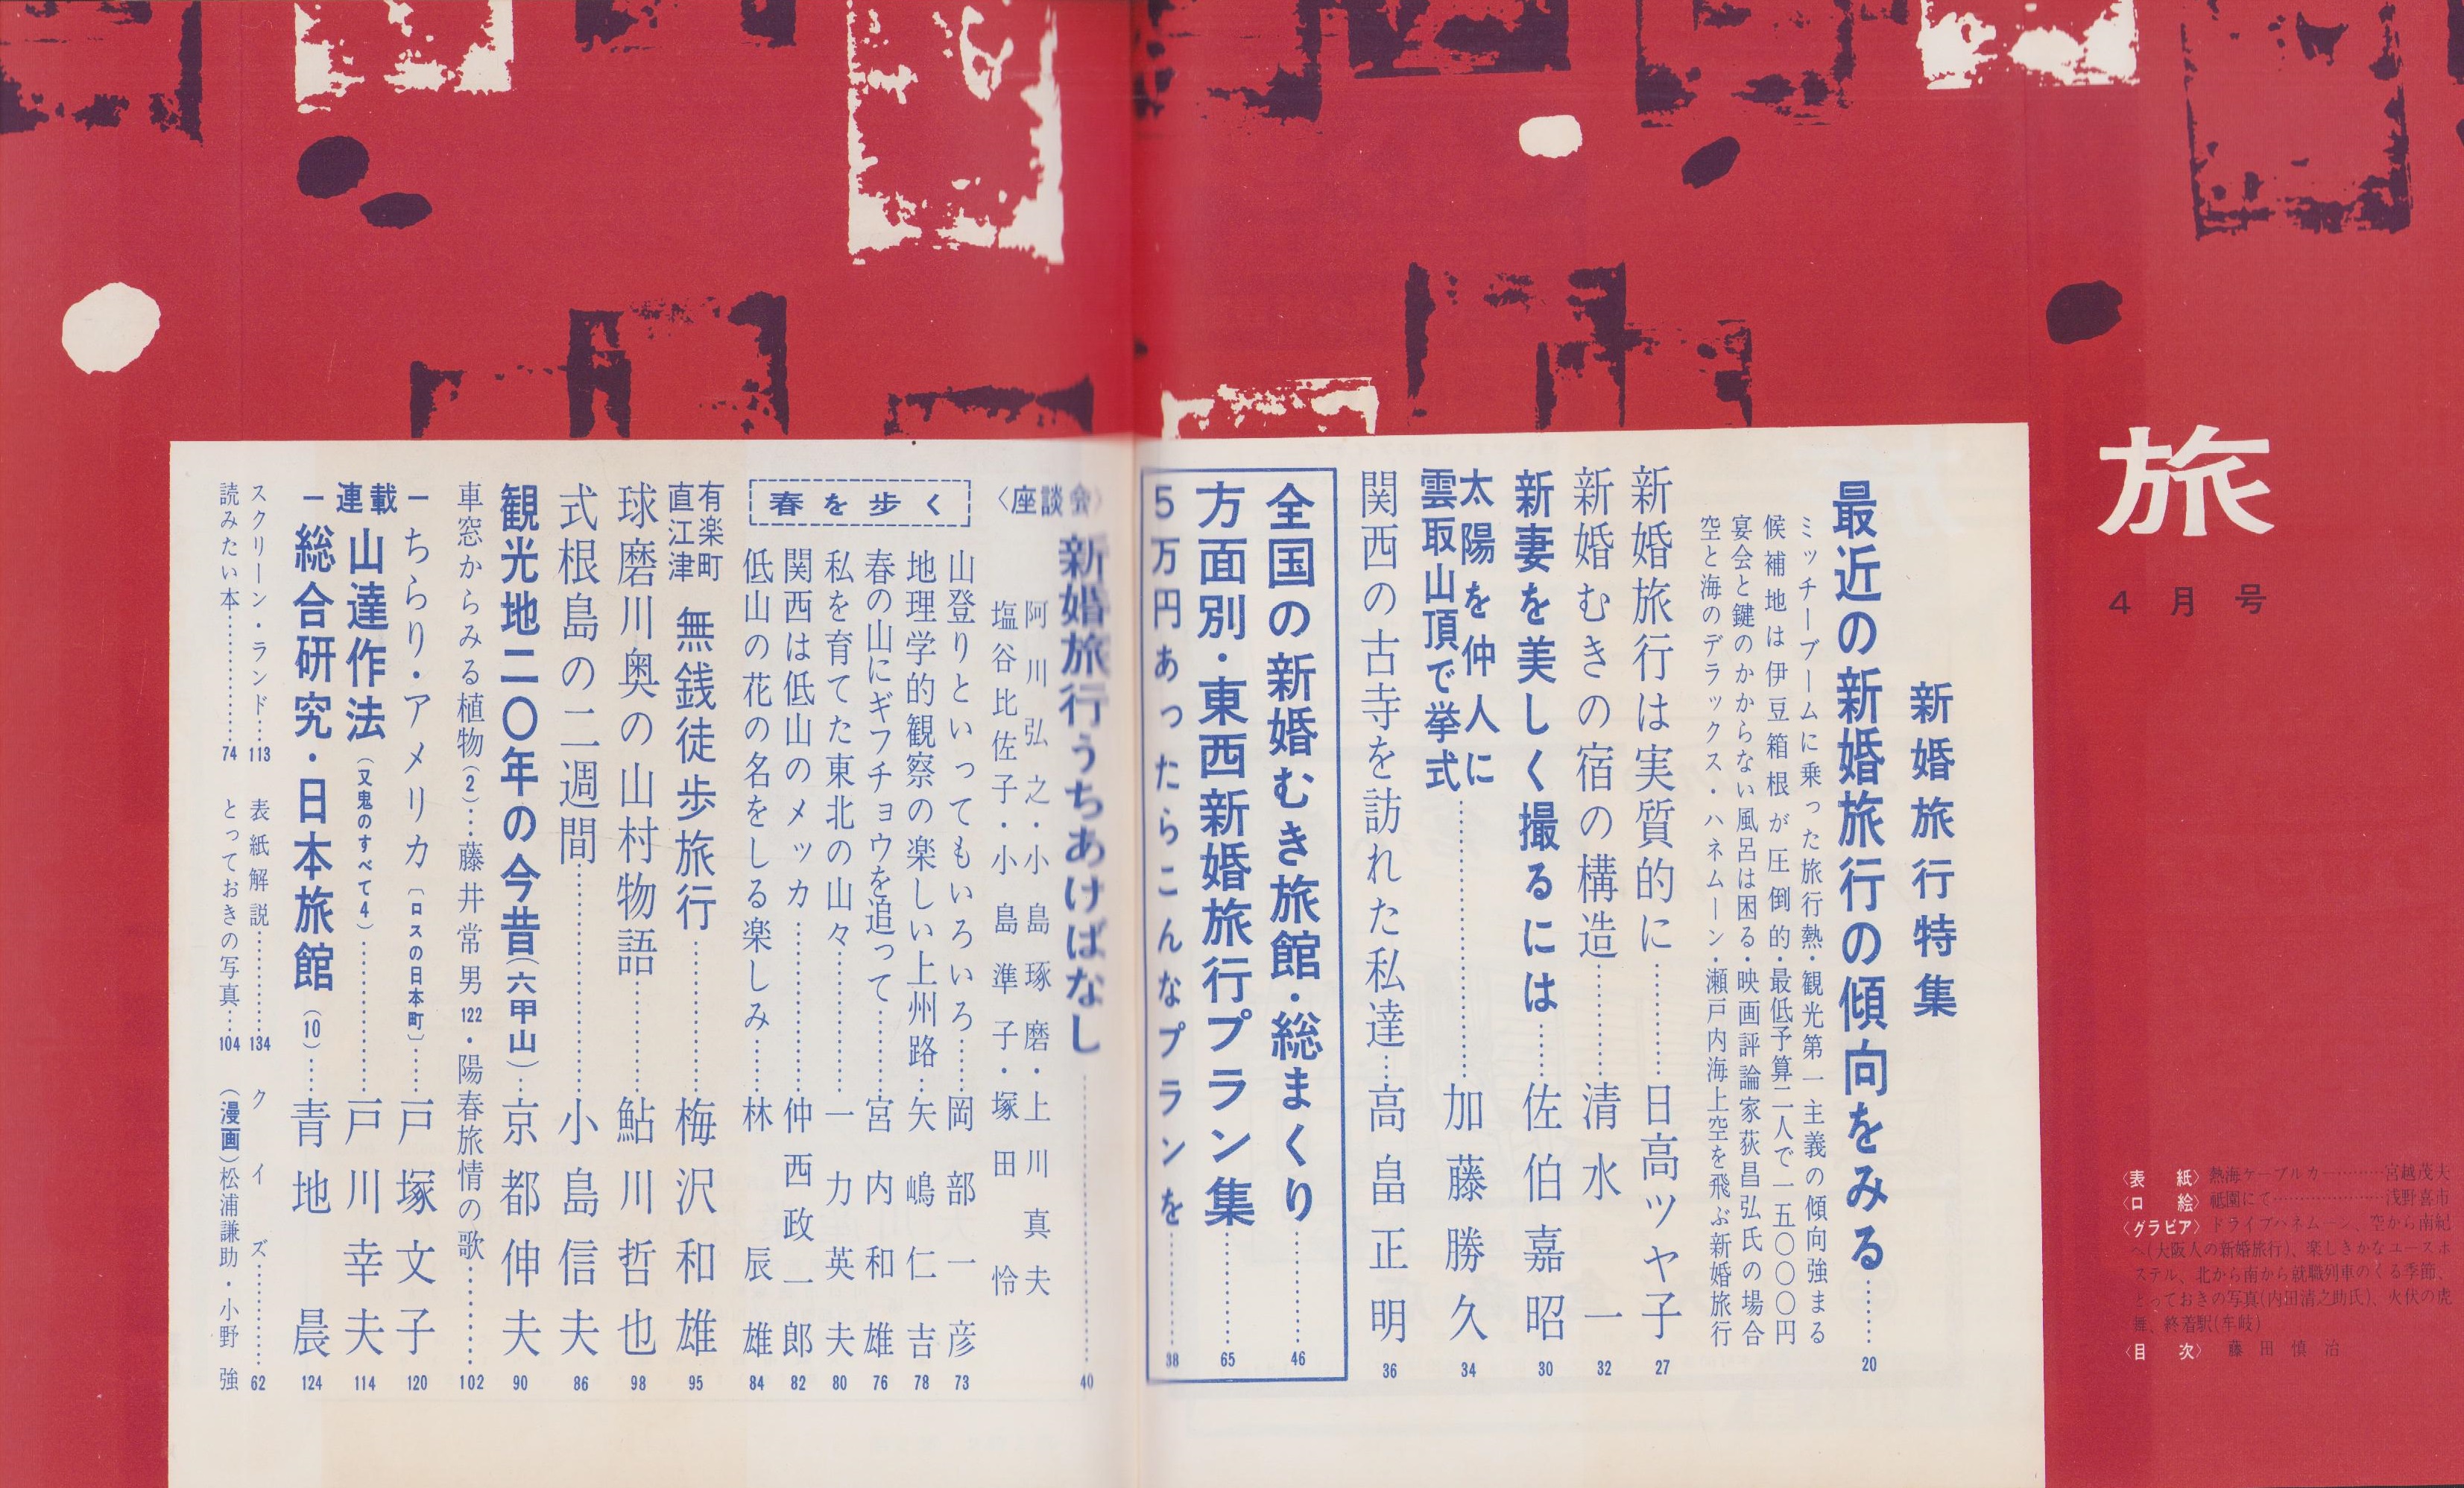 旅
4月号
〈表紙〉熱海ケーブルカー…………宮越茂夫
〈口絵〉祗園にて…………………浅野喜市
〈グラビア〉ドライブハネムーン、空から南紀
へ(大阪人の新婚旅行)、楽しきかなユースホ
ステル、北から南から就職列車のくる季節、
とっておきの写真(内田清之助氏)、火伏の虎
舞、終着駅(牟岐)
〈目次〉藤田慎治
新婚旅行特集
最近の新婚旅行の傾向をみる……20
ミッチーブームに乗った旅行熱・観光第一主義の傾向強まる
候補地は伊豆箱根が圧倒的・最低予算二人で一五〇〇〇円
宴会と鍵のかからない風呂は困る・映画評論家荻昌弘氏の場合
空と海のデラックス・ハネムーン・瀬戸内海上空を飛ぶ新婚旅行
新婚旅行は実質的に…………日高ツヤ子 27
新婚むきの宿の構造…………清水一 32
新妻を美しく撮るには……佐伯嘉昭 30
太陽を仲人に
雲取山頂で挙式……………………加藤勝久 34
関西の古寺を訪れた私達…高畠正明 36
全国の新婚むき旅館・総まくり…………46
方面別・東西新婚旅行プラン集…………65
5万円あったらこんなプランを…………38
〈座談会〉新婚旅行うちあけばなし……………………40
阿川弘之・小島琢磨・上川真夫
塩谷比佐子・小島準子・塚田怜
春を歩く
山登りといってもいろいろ……岡部一彦 73
地理学的観察の楽しい上州路…矢嶋仁吉 78
春の山にギフチョウを追って………宮内和雄 76
私を育てた東北の山々…………一力英夫 80
関西は低山のメッカ……………仲西政一郎 82
低山の花の名をしる楽しみ……林辰雄 84
有楽町
直江津 無銭徒歩旅行…………梅沢和雄 95
球磨川奥の山村物語…………鮎川哲也 98
式根島の二週間……………………小島信夫 86
観光地二〇年の今昔(六甲山)…京都伸夫 90
車窓からみる植物(2)…藤井常男 122・陽春旅情の歌…………102
ー連載ー
ちらり・アメリカ〔ロスの日本町〕……戸塚文子 120
山達作法(又鬼のすべて4)……………戸川幸夫 114
総合研究・日本旅館(10)……青地晨 124
スクリーン・ランド…113 表紙解説…………134 クイズ…………62
読みたい本……………74 とっておきの写真…104 (漫画)松浦謙助・小野強